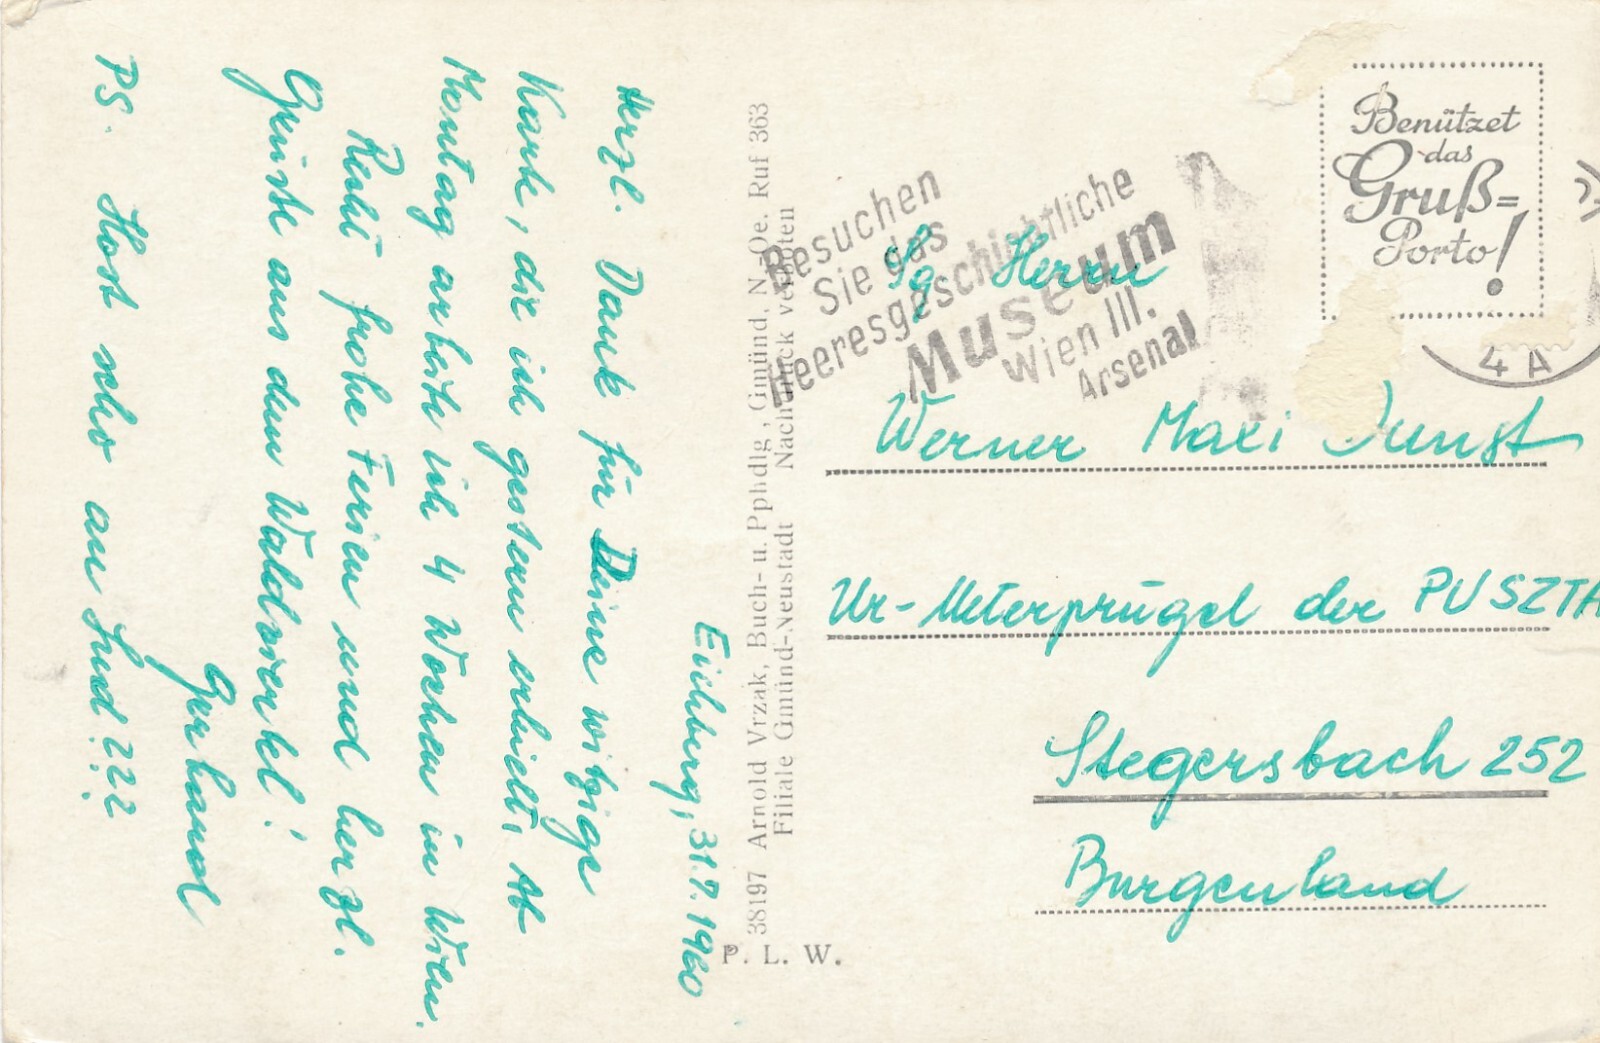 Eichberg, 31.7.1960
Herzl. Dank für Deine witzige
Karte, die ich gestern erhielt. Ab
Montag arbeite ich 4 Wochen in Wien.
frohe Ferien und herzl.
Grüsse aus dem Waldviertel!
Gerhard
PS. Host scho an Sud???
38197 Arnold Vrzak, Buch- u. Pphdlg., Gmünd, N.-Oe. Ruf 363
Filiale Gmünd-Neustadt Nachdruck verboten
P. L. W.
Besuchen
Sie das
Heeresgeschichtliche
Museum
Wien III.
Arsenal
Benützet
das
Gruß=
Porto!
4 A
Sg. Herrn
Werner Maxi
Ur-Meterprügel der PUSZTA
Stegersbach 252
Burgenland